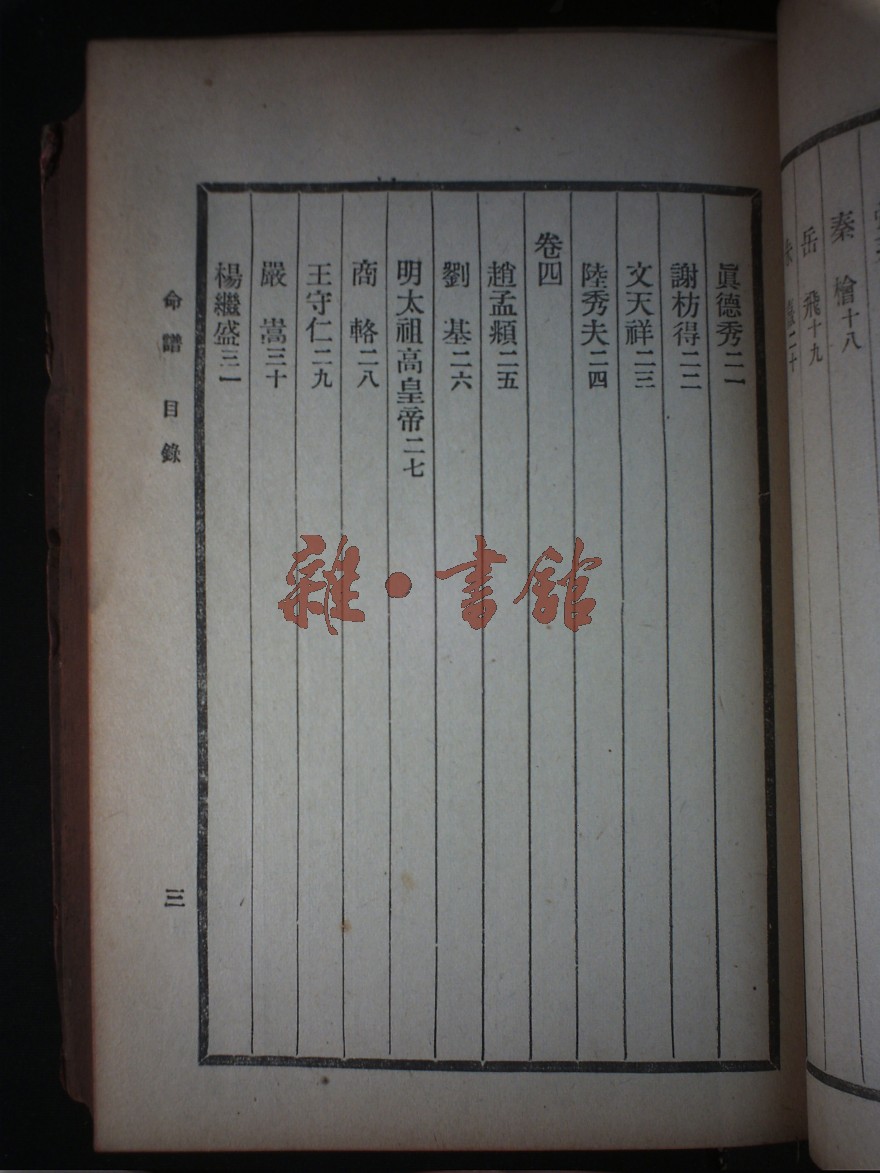 秦檜十八
岳飛十九
二十
眞德秀二一
謝枋得二二
文天祥二三
陸秀夫二四
卷四
趙孟頫二五
劉基二六
明太祖高皇帝二七
商輅二八
王守仁二九
嚴嵩三十
楊繼盛三一
命譜 目錄
三
雜•書館